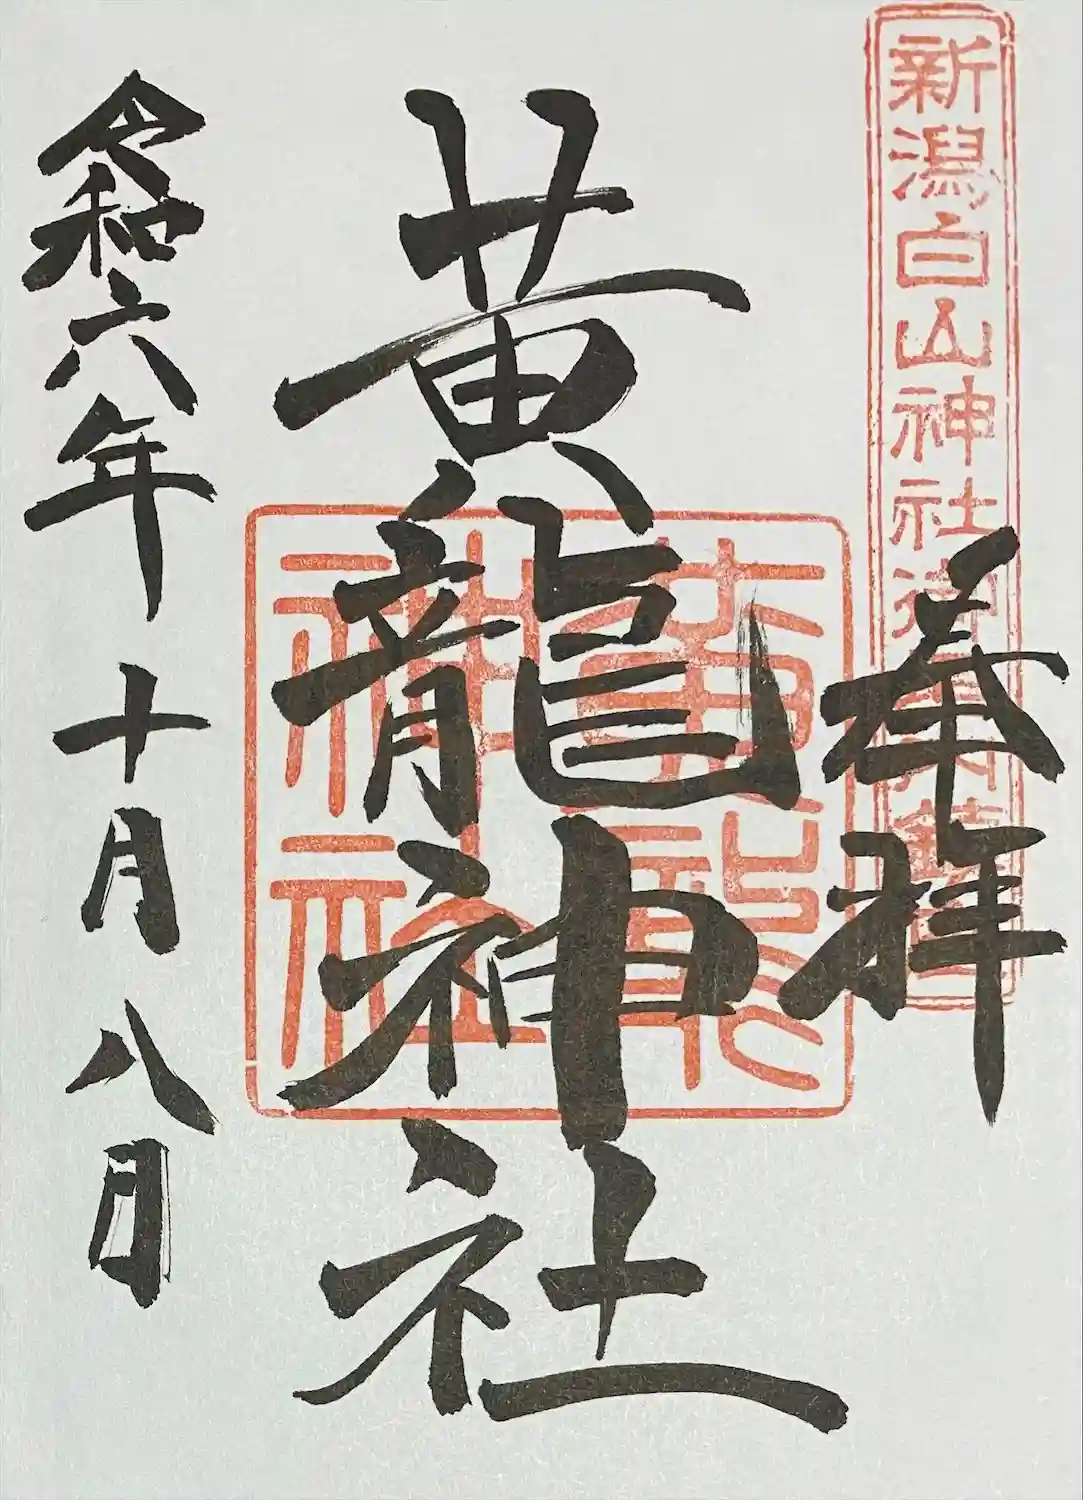 新潟白山神社御
奉拝
黄龍神社
黄龍
神社
令和六年 十月 八日